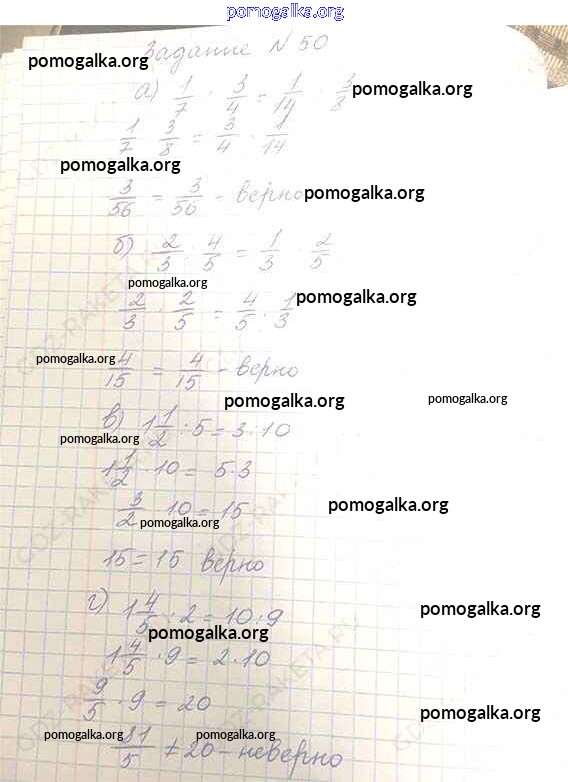 pomogalka.org
Задание N 50
pomogalka.org
а) 1/7 : 3/4 = 1/14 : 3/8 pomogalka.org
1/7 · 3/8 = 3/4 · 1/14
pomogalka.org
3/56 = 3/56 - верно pomogalka.org
б) 2/3 : 4/5 = 1/3 : 2/5
pomogalka.org
2/3 · 2/5 = 4/5 · 1/3 pomogalka.org
pomogalka.org
4/15 = 4/15 - верно
pomogalka.org pomogalka.org
в) 1 1/2 : 5 = 3 : 10
pomogalka.org
1 1/2 · 10 = 5 · 3
3/2 · 10 = 15 pomogalka.org
pomogalka.org
15 = 15 верно
г) 1 4/5 : 2 = 10 : 9 pomogalka.org
pomogalka.org
1 4/5 · 9 = 2 · 10
9/5 · 9 = 20 pomogalka.org
pomogalka.org pomogalka.org
81/5 ≠ 20 - неверно
GDZ-RAKETA.RU